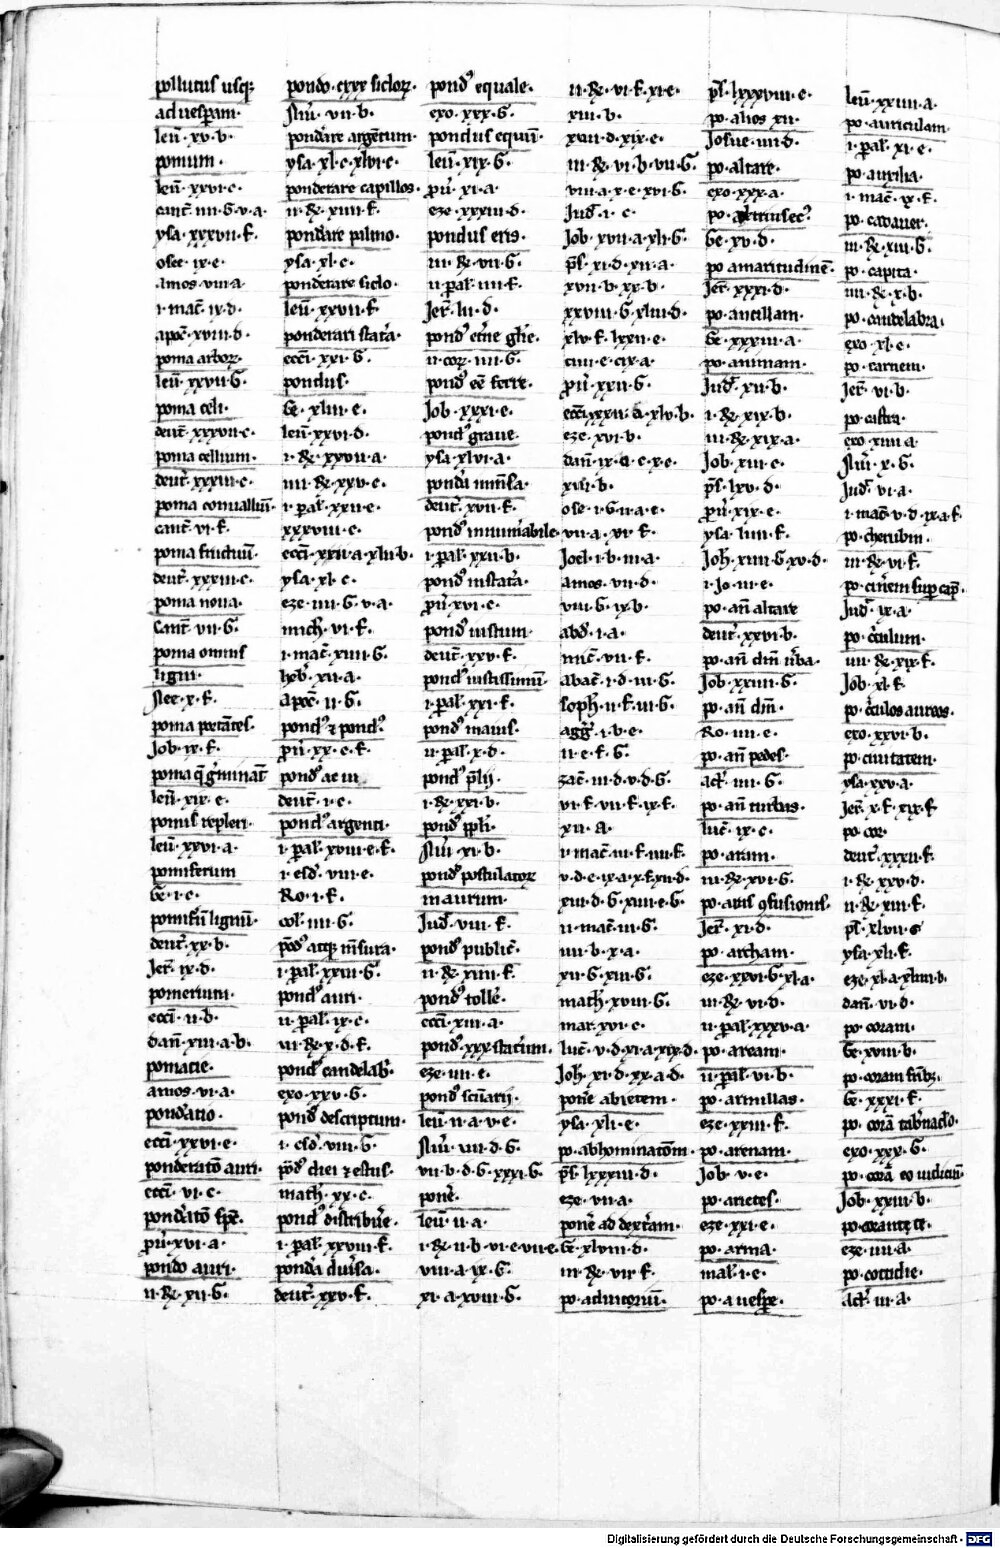 pollutus usq;
ad uesperam·
leu̅·xv·b·
pomum·
leu̅·xxvi·c·
cant̅·iiii·G·v·a·
ysa·xxxvii·f·
osee·ix·e·
amos·viii·a·
i·mac̅·ix·d·
apoc̅·xviii·d·
poma arbor̅·
leu̅·xxvii·G·
poma celi·
deut̅·xxxvii·c·
poma collium·
deut̅·xxxiii·c·
poma conualliu̅·
cant̅·vi·f·
poma fructuu̅·
deut̅·xxxiii·c·
poma noua·
Cant̅·vii·G·
poma omnis
ligni·
Nee·x·f·
poma portantes·
Job·ix·f·
poma q̅ g̅minant̅
leu̅·xix·e·
pomis repleri·
leu̅·xxvi·a·
pomiferum
Ge̅·i·c·
pomifer̅u̅ lignu̅·
deut̅·xx·b·
Jer̅·ix·d·
pomerium·
eccl̅i·ii·b·
dan̅·xiii·a·b·
pomatie·
amos·vi·a·
pond̅atio·
eccl̅i·xxvi·e·
ponderato̅ auri·
eccl̅i·vi·c·
pond̅ato̅ spe̅·
p̅u̅·xvi·a·
pondo auri·
ii·Re̅·xii·G·
pondo·cxxx·siclor̅·
Nu̅·vii·b·
pond̅are argentum·
ysa·xl·c·xlvi·c·
ponderare capillos·
ii·Re̅·xiiii·f·
pond̅are palmo·
ysa·xl·c·
ponderare siclo·
leu̅·xxvii·f·
ponderari stat̅a·
eccl̅i·xxi·G·
pondus·
Ge̅·xliii·e·
leu̅·xxvi·d·
i·Re̅·xxvii·a·
iiii·Re̅·xxv·e·
i·pal̅·xxii·e·
xxxviii·e·
eccl̅i·xxii·a·xlii·b·
ysa·xl·c·
eze·iiii·G·v·a·
mich̅·vi·f·
i·mac̅·xiiii·G·
heb̅·xii·a·
apoc̅·ii·G·
pond᷒ ⁊ pond᷒·
p̅u̅·xx·e·f·
deut̅·i·e·
pond᷒ argenti·
i·pal̅·xviii·e·f·
i·esd̅·viii·e·
Ro·i·f·
col·iiii·G·
po̅d᷒ atq; me̅sura·
i·pal̅·xxiii·G·
pond᷒ auri·
ii·pal̅·ix·c·
iii·Re̅·x·d·f·
pond᷒ candelab̅·
exo·xxv·G·
pond᷒ descriptum·
i·esd̅·viii·G·
po̅d᷒ diei ⁊ estus·
math̅·xx·c·
pond᷒ distribue̅·
i·pal̅·xxviii·f·
pond̅a diu̅sa·
deut̅·xxv·f·
pond᷒ equale·
exo·xxx·G·
pondus equu̅·
leu̅·xix·G·
p̅u̅·xi·a·
eze·xxxiii·d·
pondus eris·
iii·Re̅·vii·G·
ii·pal̅·iiii·f·
Jer̅·lii·d·
pond᷒ et̅ne gl̅ie·
ii·cor̅·iiii·G·
pond᷒ ee̅ ferre·
Job·xxxi·e·
pond᷒ graue·
ysa·xlvi·a·
pond̅a inmisa·
deut̅·xvii·f·
pond᷒ innumabile·
i·pal̅·xxii·b·
pond᷒ in stat̅a·
p̅u̅·xvi·e·
pond᷒ iustum·
deut̅·xxv·f·
pond᷒ iustissimu̅·
i·pal̅·xxi·f·
pond᷒ maius·
ii·pal̅·x·d·
pond᷒ p̅lii·
i·Re̅·xxi·b·
pond᷒ pp̅li·
Nu̅·xi·b·
pond᷒ postulator̅
in aurum·
Jud̅·viii·f·
pond᷒ public̅·
ii·Re̅·xiiii·f·
pond᷒ tolle̅·
eccl̅i·xiii·a·
pond᷒·xxx·staterum·
eze·iiii·e·
pond᷒ sc̅uarii·
leu̅·ii·a·v·e·
Nu̅·iiii·d·G·
vii·b·d·G·xxxi·G·
pone̅·
leu̅·ii·a·
i·Re̅·ii·b·vi·e·vii·e·
viii·a·ix·G·
xi·a·xviii·G·
ii·Re̅·vi·f·xi·e·
xiii·b·
xviii·d·xix·e·
iii·Re̅·vi·b·vii·G·
viii·a·x·e·xvi·G·
Jud̅·i·c·
Job·xvii·a·xli·G·
ps̅·xi·d·xx·a·
xvii·b·xx·b·
xxviii·G·xliii·d·
xlv·f·lxxii·e·
ciiii·e·cix·a·
p̅u̅·xxii·G·
eccl̅i·xxii·d·xlv·b·
eze·xvi·b·
dan̅·ix·a·c·x·e·
xiiii·b·
ose·i·G·ii·a·e·
vii·a·xi·f·
Joel·i·b·iii·a·
amos·vii·d·
viii·G·ix·b·
abd̅·i·a·
mic̅·vii·f·
abac̅·i·d·iii·G·
soph̅·ii·f·iii·G·
agg̅·i·b·e·
ii·e·f·G·
zac̅·iii·d·v·d·G·
vi·f·vii·f·ix·f·
xii·a·
i·mac̅·iii·f·iiii·f·
v·d·e·ix·a·x·f·xii·d·
xiii·d·G·xiiii·e·G·
ii·mac̅·iii·G·
iiii·b·x·a·
xii·G·xiii·G·
math̅·xviii·G·
mar·xvi·e·
luc̅·v·d·xi·a·xix·d·
Joh̅·xi·d·xx·a·d·
pone̅ abietem·
ysa·xli·e·
po·abhominato̅m·
ps̅·lxxxiii·d·
eze·vii·a·
pone̅ ad dext̅am·
Ge̅·xlviii·d·
iii·Re̅·vii·f·
po·adiutoriu̅·
ps̅·lxxxviii·e·
po·alios xii·
Josue·iiii·d·
po·altare·
exo·xxx·a·
Ge̅·xv·d·
po amaritudine̅·
Jer̅·xxxi·d·
po·ancillam·
Ge̅·xxxiii·a·
po·animam·
Jud̅·xii·b·
i·Re̅·xix·b·
iii·Re̅·xix·a·
Job·xiii·e·
ps̅·lxv·d·
p̅u̅·xix·e·
ysa·liiii·f·
Joh̅·xiii·G·xv·d·
i·Jo·iii·e·
po·an̅ altare
deut̅·xxvi·b·
po·an̅ dm̅ u̅ba·
Job·xxiii·G·
po·an̅ dm̅·
Ro·iiii·e·
po·an̅ pedes·
act̅·iiii·G·
po·an̅ turbas·
luc̅·ix·c·
po·arum·
iii·Re̅·xvi·G·
po·aras ꝯfusionis·
Jer̅·xi·d·
po·archam·
eze·xxvi·G·xl·a·
iii·Re̅·vi·d·
ii·pal̅·xxxv·a·
po·aream·
ii·pal̅·vi·b·
po·armillas·
eze·xxiii·f·
po·arenam·
Job·v·e·
po·arietes·
eze·xxi·e·
po·arma·
mal̅·i·e·
po·a uespe̅·
leu̅·xxiiii·a·
po·auriculam·
i·pal̅·xi·e·
po·auxilia·
i·mac̅·ix·f·
po·cadauer·
iii·Re̅·xiii·G·
po·capita·
iiii·Re̅·x·b·
po·candelabra·
exo·xl·e·
po·carnem·
Jer̅·vi·b·
po·castra·
exo·xiiii·a·
Nu̅·x·G·
Jud̅·vi·a·
i·mac̅·v·d·ix·a·f·
po·cherubin·
iii·Re̅·vi·f·
po·cine̅m sup̅ cap̅·
Jud̅·ix·a·
po·c̅culum·
iiii·Re̅·xix·f·
Job·xl·f·
po·c̅culos aureos·
exo·xxvi·b·
po·ciuitatem·
ysa·xxv·a·
Jer̅·x·f·xix·f·
po·cor·
deut̅·xxxii·f·
i·Re̅·xxv·d·
ii·Re̅·xiii·f·
ps̅·xlvii·G
ysa·xli·f·
eze·xl·a·xliiii·b·
dan̅·vi·d·
po·coram·
Ge̅·xviii·b·
po·coram frib;·
Ge̅·xxxi·f·
po·cora̅ tab̅naclo·
exo·xxx·G·
po·cora̅ eo iudiciu̅·
Job·xxiii·b·
po·coram te·
eze·iiii·a·
po·cotidie·
act̅·iii·a·
Digitalisierung gefördert durch die Deutsche Forschungsgemeinschaft · DFG